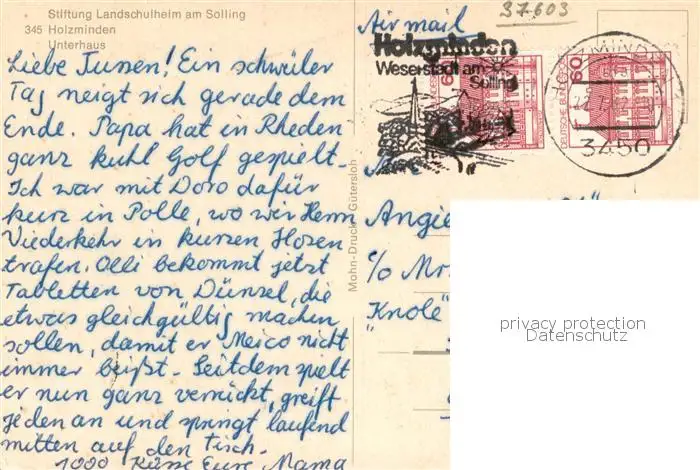 37603
Stiftung Landschulheim am Solling
345 Holzminden
Unterhaus
Air mail
Holzminden
Weserstadt am
Solling
60
DEUTSCHE BUNDESPOST
3450
Liebe Jussen! Ein schwüler
Tag neigt sich gerade dem
Ende. Papa hat in Rheden
ganz kuhl Golf gespielt.
Ich war mit Doro dafür
kurz in Polle, wo wir Herrn
Viederkehr in kurzen Hosen
trafen. Olli bekommt jetzt
Tabletten von Dünsel, die
etwas gleichgültig machen
sollen, damit er Meico nicht
immer beißt. Seitdem spielt
er nun ganz verrückt, greift
jeden an und springt laufend
mitten auf den Tisch.
1000 Küsse Eure Mama
Mohn-Druck Gütersloh
Angie
c/o Mr.
"Knole"
privacy protection
Datenschutz